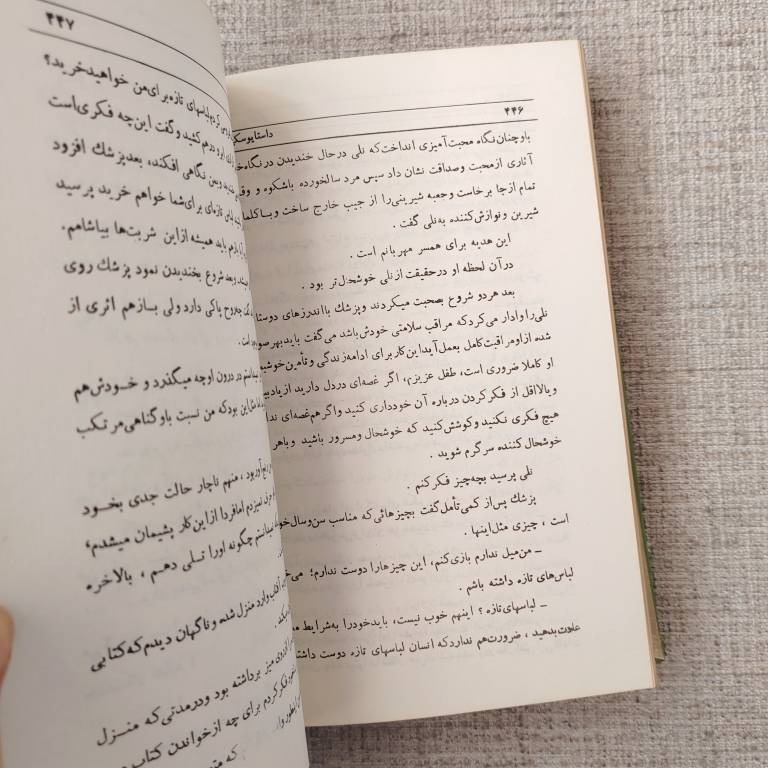 ۴۴۶
داستایوسکی
باوچنان نگاه محبت‌آمیزی انداخت که نلی در حال خندیدن در نگاه
آثاری از محبت وصداقت نشان داد سپس مرد سالخورده باشکوه و
تمام از جا برخاست وجعبه شیرینی را از جیب خارج ساخت وبا
شیرین و نوازش‌کننده به نلی گفت .
این هدیه برای همسر مهربانم است .
در آن لحظه او درحقیقت از نلی خوشحال‌تر بود .
بعد هردو شروع بصحبت میکردند وپزشك بااندرزهای
نلی را وادار می‌کرد که مراقب سلامتی خودش باشد می‌گفت باید بهر
شده از او مراقبت کامل بعمل آید این کار برای ادامه زندگی و تأمین
او کاملا ضروری است، طفل عزیزم، اگر غصه‌ای در دل دارید از یاد
ویا اقل از فکر کردن درباره آن خودداری کنید واگر هم غصه‌ای
هیچ فکری نکنید و کوشش کنید که خوشحال ومسرور باشید وباهر
خوشحال کننده سرگرم شوید .
نلی پرسید بچه‌چیز فکر کنم .
پزشك پس از کمی تأمل گفت بچیزهائی که مناسب سن وسال
است ، چیزی مثل اینها .
ــ من میل ندارم بازی کنم، این چیزها را دوست ندارم؛
لباس‌های تازه داشته باشم .
ــ لباسهای تازه ؟ اینهم خوب نیست، باید خود را به شرایط
عادت بدهید ، ضرورت هم ندارد که انسان لباسهای تازه دوست
۴۴۷
لباسهای تازه برای من خواهید خرید؟
درهم کشید وگفت این چه فکری است
وبمن نگاهی افکند، بعد پزشك افزود
لباس تازه‌ای برای شما خواهم خرید پرسید
باید همیشه از این شربت‌ها بیاشامم.
وبعد شروع بخندیدن نمود پزشك روی
روح پاکی دارد ولی بازهم اثری از
است .
در درون او چه میگذرد و خودش هم
این بود که من نسبت باو گناهی مرتکب
، منهم ناچار حالت جدی بخود
نمیزدم اما فردا از این کار پشیمان میشدم،
چگونه اورا تسلی دهم ، بالاخره
وارد منزل شدم و ناگهان دیدم که کتابی
میز برداشته بود ودرمدتی که منزل
فکر کردم برای چه از خواندن کتاب